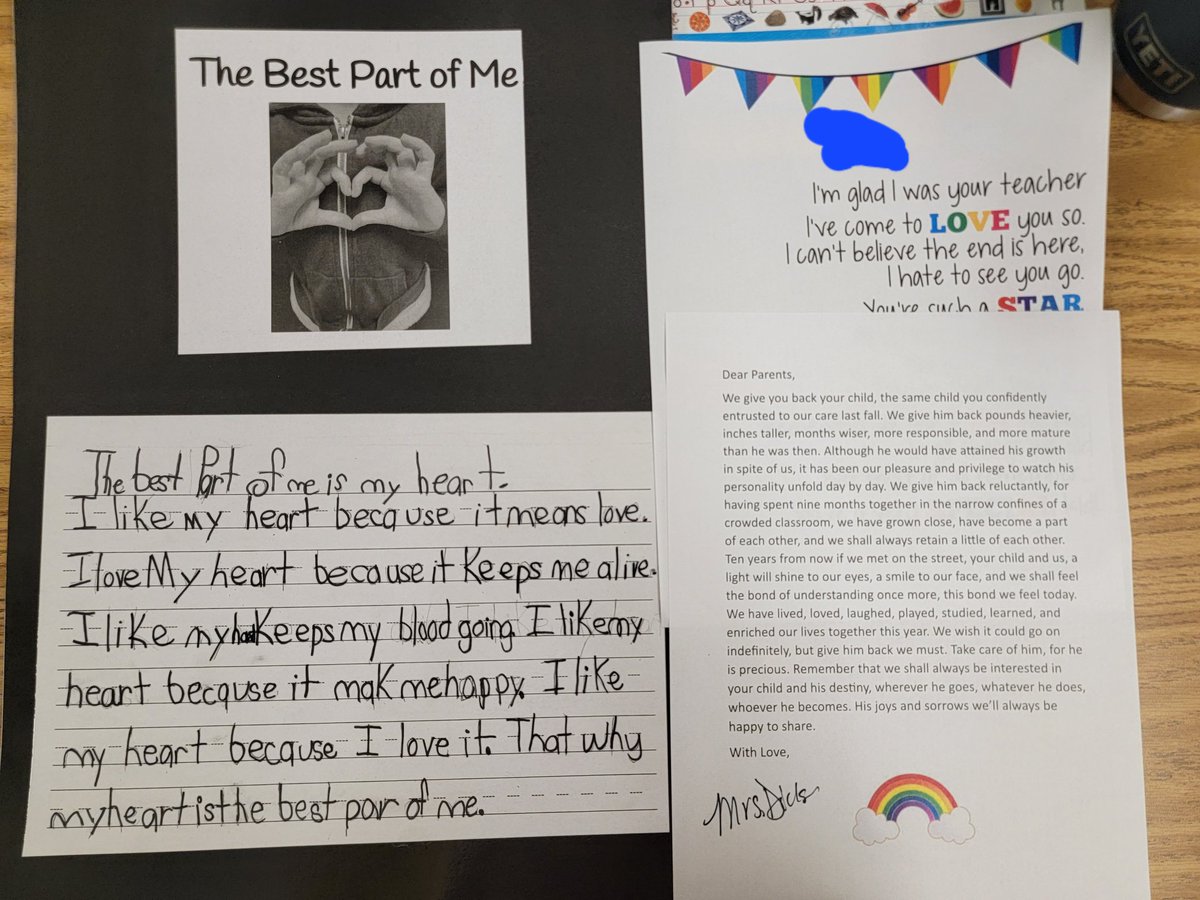 The Best Part of Me
The best Part of me is my heart.
I like my heart because it means love.
I love My heart because it Keeps me alive.
I like my Keeps my blood going I like my
heart because it mak me happy. I like
my heart because I love it. That why
my heart is the best par of me.
I'm glad I was your teacher
I've come to LOVE you so.
I can't believe the end is here,
I hate to see you go.
You're such a STAR
Dear Parents,
We give you back your child, the same child you confidently
entrusted to our care last fall. We give him back pounds heavier,
inches taller, months wiser, more responsible, and more mature
than he was then. Although he would have attained his growth
in spite of us, it has been our pleasure and privilege to watch his
personality unfold day by day. We give him back reluctantly, for
having spent nine months together in the narrow confines of a
crowded classroom, we have grown close, have become a part
of each other, and we shall always retain a little of each other.
Ten years from now if we met on the street, your child and us, a
light will shine to our eyes, a smile to our face, and we shall feel
the bond of understanding once more, this bond we feel today.
We have lived, loved, laughed, played, studied, learned, and
enriched our lives together this year. We wish it could go on
indefinitely, but give him back we must. Take care of him, for he
is precious. Remember that we shall always be interested in
your child and his destiny, wherever he goes, whatever he does,
whoever he becomes. His joys and sorrows we'll always be
happy to share.
With Love,
Mrs.
YETI